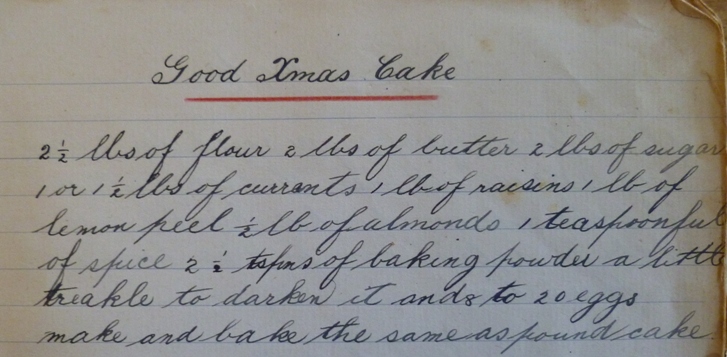 Good Xmas Cake
2 ½ lbs of flour 2 lbs of butter 2 lbs of sugar
1 or 1 ½ lbs of currants 1 lb of raisins 1 lb of
lemon peel ½ lb of almonds 1 teaspoonful
of spice 2 ½ tspns of baking powder a littl
treakle to darken it and 8 to 20 eggs
make and bake the same as pound cake